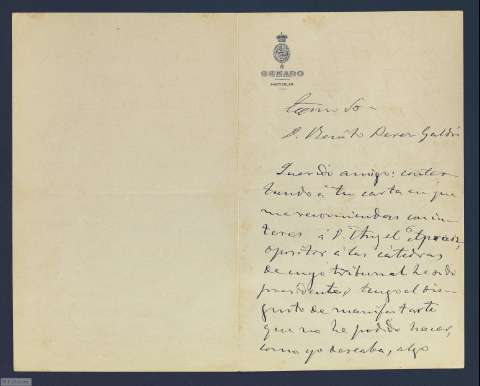 SENADO
PARTICULAR
Excmo Sr
D. Benito Perez Galdós
Querido amigo: contes-
tando á tu carta en que
me recomiendas con in-
teres á D. Angel
opositor á las cátedras
de cuyo tribunal he sido
presidente, tengo el dis-
gusto de manifestarte
que no he podido hacer,
como yo deseaba, algo